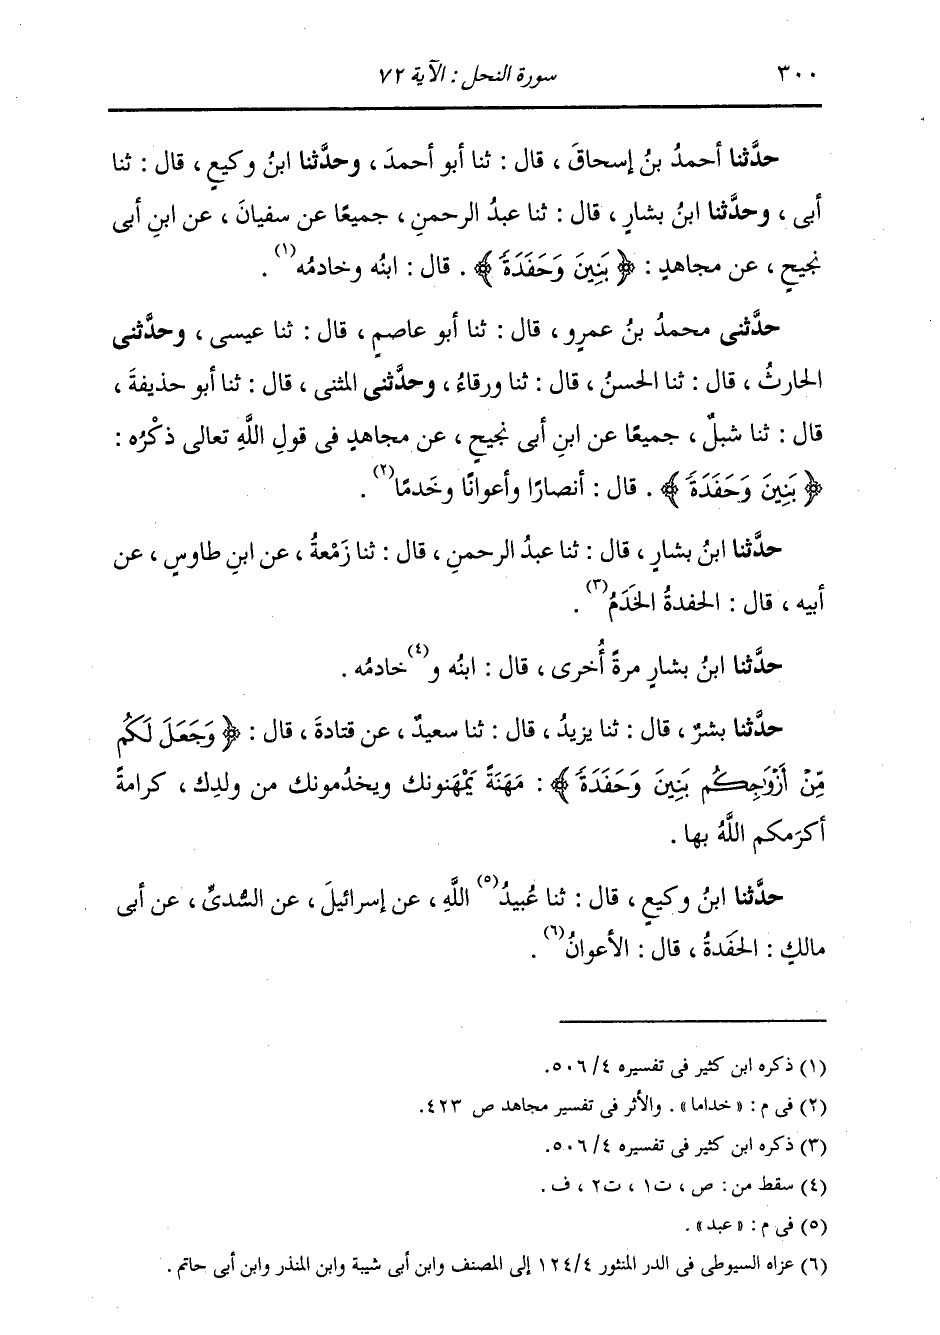 ٣٠٠ سورة النحل : الآية ٧٢
حدَّثنا أحمدُ بنُ إسحاقَ ، قال : ثنا أبو أحمدَ ، وحدَّثنا ابنُ وكيعٍ ، قال : ثنا
أبى ، وحدَّثنا ابنُ بشارٍ ، قال : ثنا عبدُ الرحمنِ ، جميعًا عن سفيانَ ، عن ابنِ أبى
نجيحٍ ، عن مجاهدٍ : ﴿ بَنِينَ وَحَفَدَةً ﴾ . قال : ابنُه وخادمُه(١) .
حدَّثنى محمدُ بنُ عمرٍو ، قال : ثنا أبو عاصمٍ ، قال : ثنا عيسى ، وحدَّثنى
الحارثُ ، قال : ثنا الحسنُ ، قال : ثنا ورقاءُ ، وحدَّثنى المثنى ، قال : ثنا أبو حذيفةَ ،
قال : ثنا شبلٌ ، جميعًا عن ابنِ أبى نجيحٍ ، عن مجاهدٍ فى قولِ اللَّهِ تعالى ذكْرُه :
﴿ بَنِينَ وَحَفَدَةً ﴾ . قال : أنصارًا وأعوانًا وخَدمًا(٢) .
حدَّثنا ابنُ بشارٍ ، قال : ثنا عبدُ الرحمنِ ، قال : ثنا زَمْعةُ ، عن ابنِ طاوسٍ ، عن
أبيه ، قال : الحفدةُ الخَدَمُ(٣) .
حدَّثنا ابنُ بشارٍ مرةً أُخرى ، قال : ابنُه و(٤)خادمُه .
حدَّثنا بشرٌ ، قال : ثنا يزيدُ ، قال : ثنا سعيدٌ ، عن قتادةَ ، قال : ﴿ وَجَعَلَ لَكُم
مِّنْ أَزْوَٰجِكُم بَنِينَ وَحَفَدَةً ﴾ : مَهَنَةً يَمْهَنونك ويخدُمونك من ولدِك ، كرامةً
أكرَمكم اللَّهُ بها .
حدَّثنا ابنُ وكيعٍ ، قال : ثنا عُبيدُ(٥) اللَّهِ ، عن إسرائيلَ ، عن السُّدىِّ ، عن أبى
مالكٍ : الحَفَدةُ ، قال : الأعوانُ(٦) .
(١) ذكره ابن كثير فى تفسيره ٤/ ٥٠٦.
(٢) فى م : « خداما » . والأثر فى تفسير مجاهد ص ٤٢٣.
(٣) ذكره ابن كثير فى تفسيره ٤/ ٥٠٦.
(٤) سقط من : ص ، ت١ ، ت٢ ، ف .
(٥) فى م : « عبد » .
(٦) عزاه السيوطى فى الدر المنثور ٤/ ١٢٤ إلى المصنف وابن أبى شيبة وابن المنذر وابن أبى حاتم .